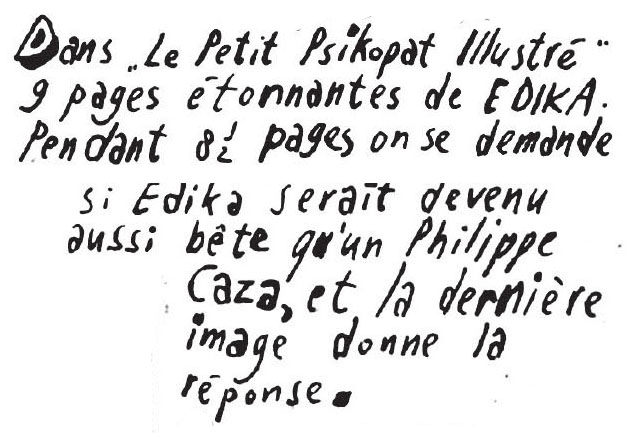 Dans „Le Petit Psikopat Illustré“
9 pages étonnantes de EDIKA.
Pendant 8 ½ pages on se demande
si Edika serait devenu
aussi bête qu'un Philippe
Caza, et la dernière
image donne la
réponse.